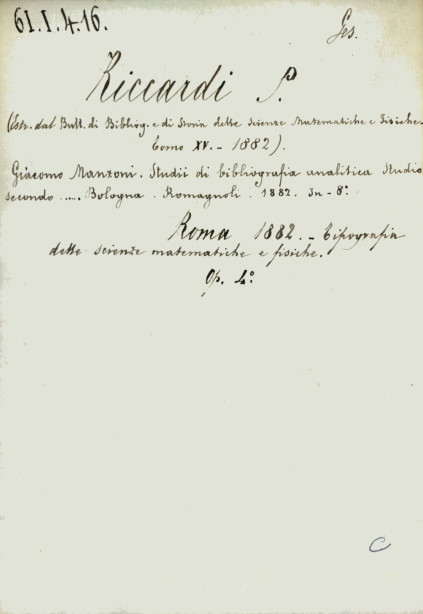 61.I.4.16.
Ges.
Riccardi P.
(Estr. dal Bull. di Bibliog. e di Storia delle Scienze Matematiche e Fisiche.
Tomo XV. - 1882).
Giacomo Manzoni. Studii di bibliografia analitica Studio
secondo .... Bologna. Romagnoli. 1882. In - 8°
Roma 1882. - Tipografia
delle scienze matematiche e fisiche.
Op. 4°
C